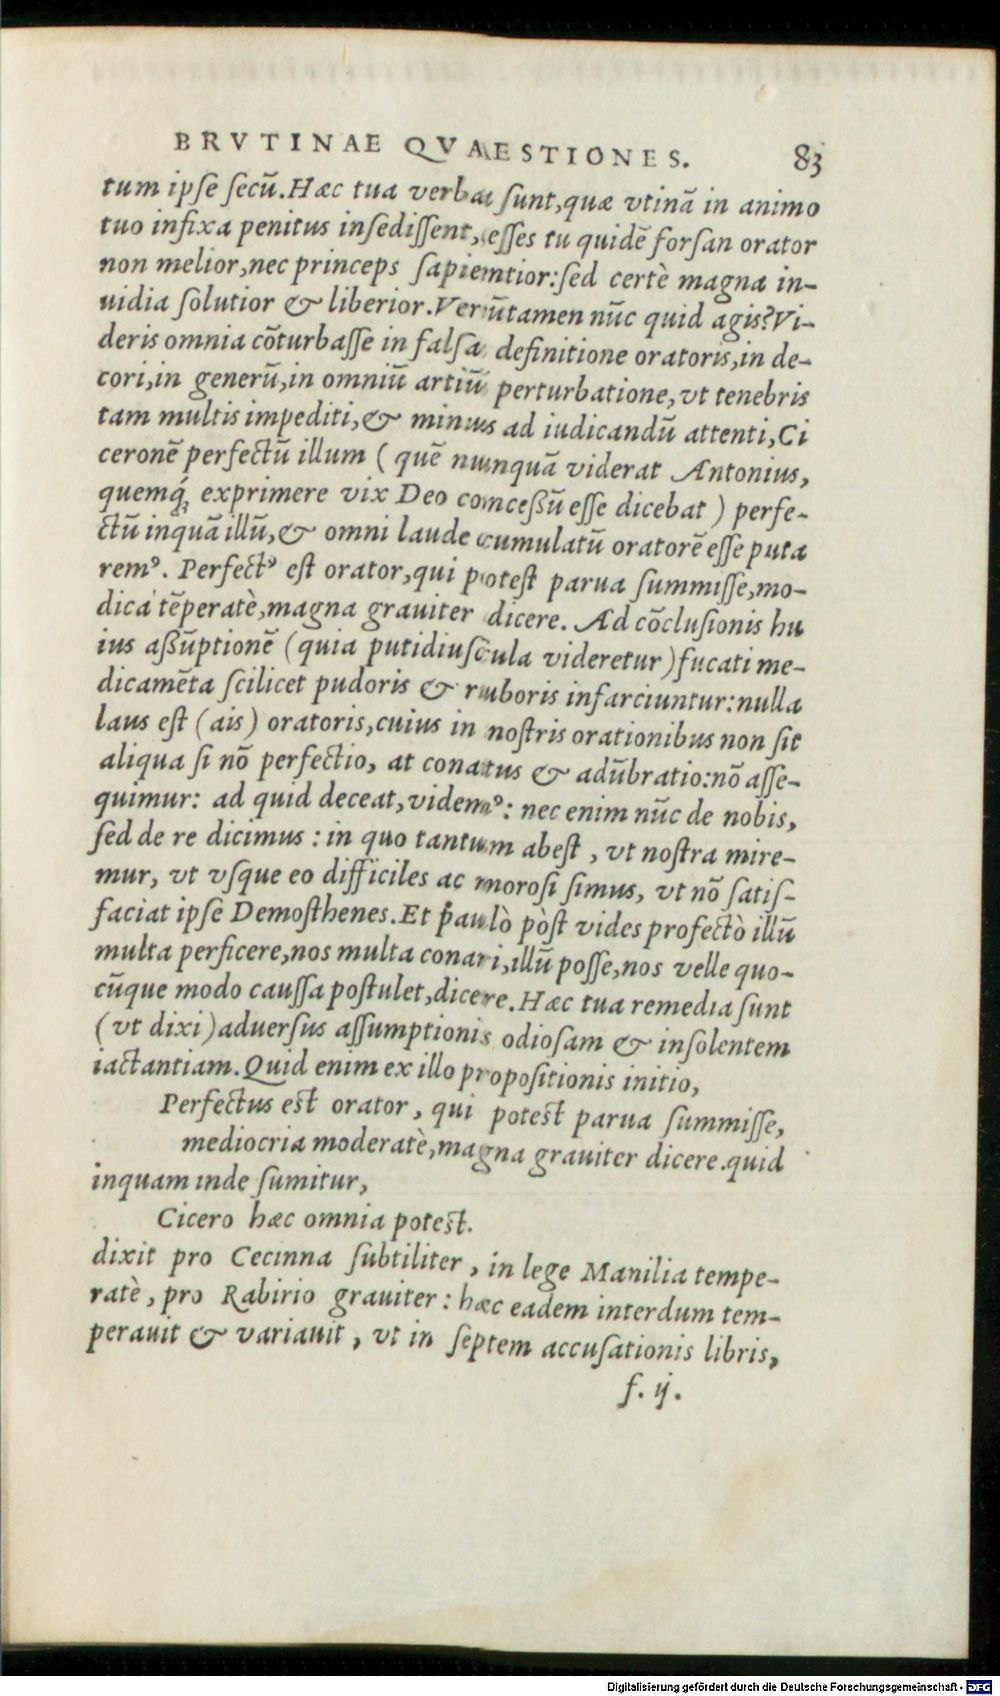 BRVTINAE QVAESTIONES. 83
tum ipse secū. Hæc tua verba sunt, quæ vtinā in animo
tuo infixa penitus insedissent, esses tu quidē forsan orator
non melior, nec princeps sapientior: sed certè magna in-
uidia solutior & liberior. Verūtamen nūc quid agis? Vi-
deris omnia cōturbasse in falsa definitione oratoris, in de-
cori, in generū, in omniū artiū perturbatione, vt tenebris
tam multis impediti, & minus ad iudicandū attenti, Ci
ceronē perfectū illum ( quē nunquā viderat Antonius,
quemq́; exprimere vix Deo concessū esse dicebat ) perfe-
ctū inquā illū, & omni laude cumulatū oratorē esse puta
remꝰ. Perfectꝰ est orator, qui potest parua summisse, mo-
dica tēperatè, magna grauiter dicere. Ad cōclusionis hu
ius assūptionē (quia putidiuscula videretur) fucati me-
dicamēta scilicet pudoris & ruboris infarciuntur: nulla
laus est (ais) oratoris, cuius in nostris orationibus non sit
aliqua si nō perfectio, at conatus & adūbratio: nō asse-
quimur: ad quid deceat, videmꝰ: nec enim nūc de nobis,
sed de re dicimus : in quo tantum abest , vt nostra mire-
mur, vt vsque eo difficiles ac morosi simus, vt nō satis-
faciat ipse Demosthenes. Et paulò pòst vides profectò illū
multa perficere, nos multa conari, illū posse, nos velle quo-
cūque modo caussa postulet, dicere. Hæc tua remedia sunt
(vt dixi) aduersus assumptionis odiosam & insolentem
iactantiam. Quid enim ex illo propositionis initio,
Perfectus est orator, qui potest parua summisse,
mediocria moderatè, magna grauiter dicere. quid
inquam inde sumitur,
Cicero hæc omnia potest.
dixit pro Cecinna subtiliter, in lege Manilia tempe-
ratè, pro Rabirio grauiter: hæc eadem interdum tem-
perauit & variauit, vt in septem accusationis libris,
f. ij.
Digitalisierung gefördert durch die Deutsche Forschungsgemeinschaft - DFG